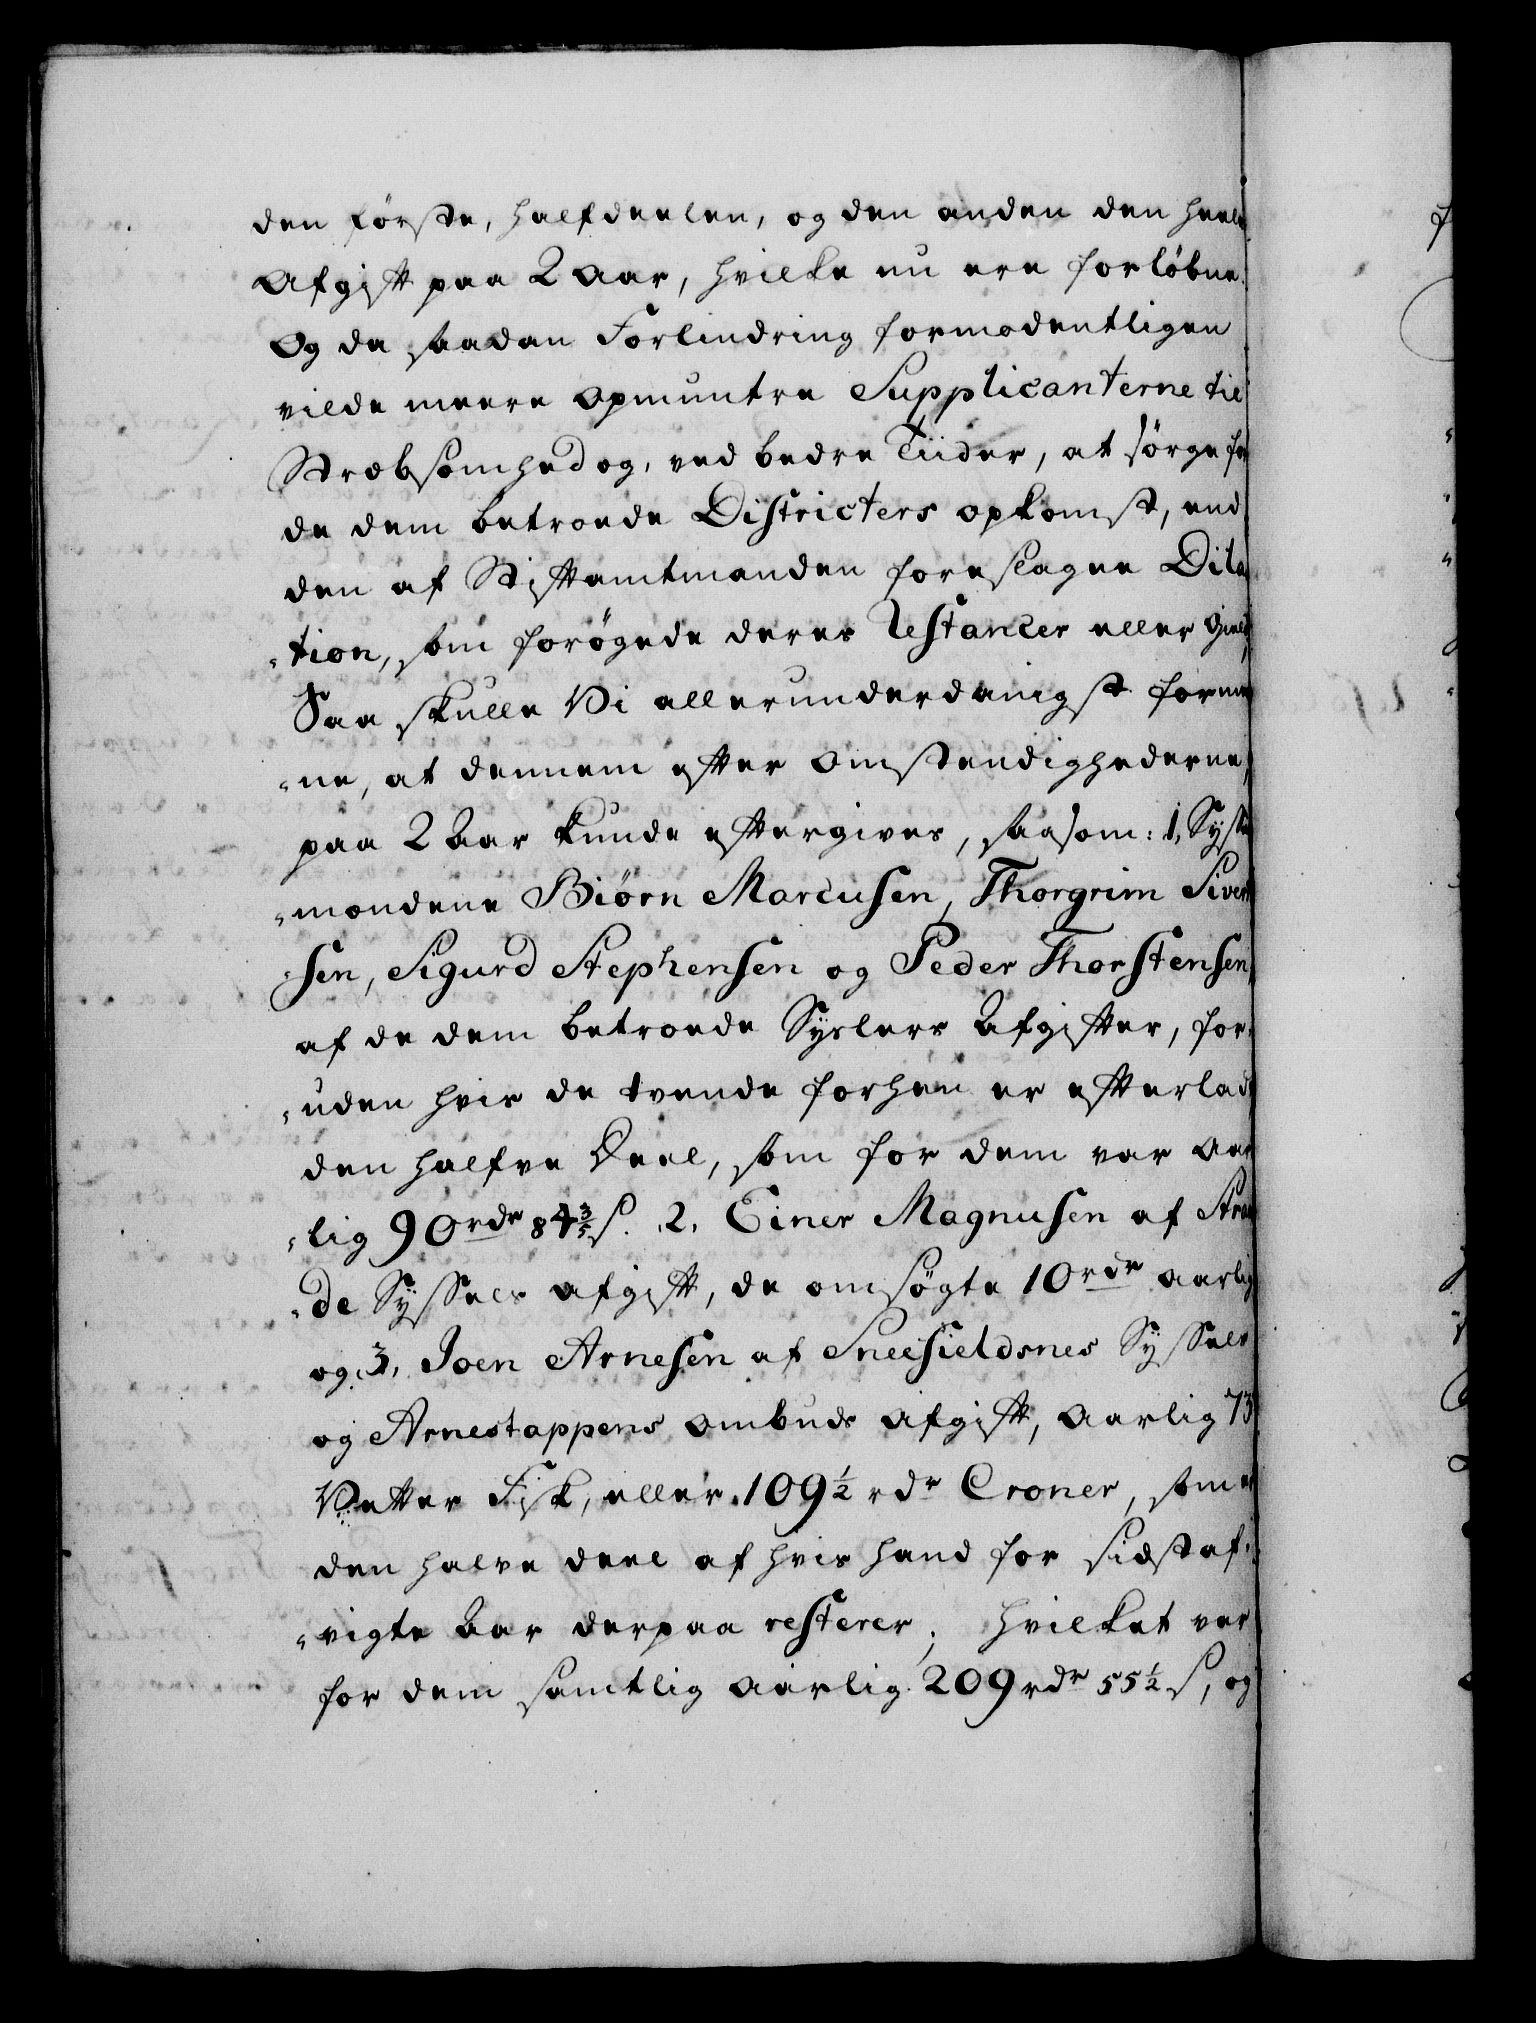 den første, halfdeelen, og den anden den heele
Afgift paa 2 Aar, hvilke nu ere forløbne.
Og da saadan Forlindring formodentligen
vilde meere opmuntre Supplicanterne til
Stræbsomhed og, ved bedre Tiider, at sørge for
de dem betroede Districters opkomst, end
den af Stiftamtmanden foreslagne Dila
"tion, som forøgede deres Restancer eller Gield,
Saa skulle Vi allerunderdanigst formee
"ne, at dennem efter Omstendighederne,
paa 2 Aar kunde eftergives, saasom: 1, Syssel
"mændene Biørn Marcusen, Thorgrim Sivert
"sen, Sigurd Stephensen og Peder Thorstensen,
af de dem betroede Syslers Afgifter, for,
"uden hvis de tvende forhen er efterladt,
den halfve Deel, som for dem var aar
"lig 90 rdr 84 3/5 ſ. 2, Einer Magnusen af Stran
"de Syssels afgift, de omsøgte 10 rdr aarlig
og 3, Joen Arnesen af Sneefieldsnes Syssels
og Arnestappens Ombuds Afgift, Aarlig 73
Vetter Fisk, eller 109 1/2 rdr Croner, som er
den halve deel af hvis hand for sidstaf,
"vigte Aar derpaa resterer; hvilket var
for dem samtlig aarlig 209 rdr 55 1/2 ſ, og